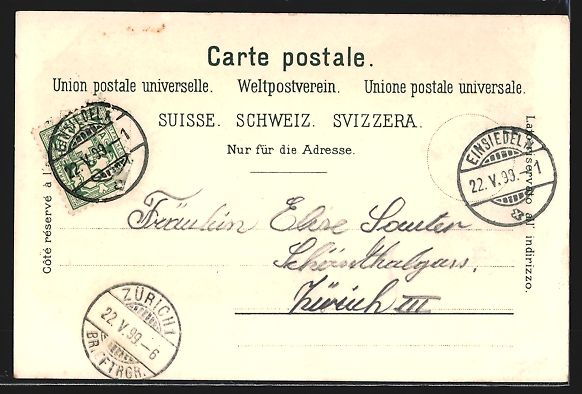 Carte postale.
Union postale universelle. Weltpostverein. Unione postale universale.
SUISSE. SCHWEIZ. SVIZZERA.
Nur für die Adresse.
Côté réservé à l'
Lato riservato all' indirizzo.
EINSIEDELN
22.V.99.-1
EINSIEDELN
22.V.99.-1
Fräulein Elise Sauter
Schönthalgass.
Zürich III
ZÜRICH 1
22.V.99-6
BRF.TRGR.